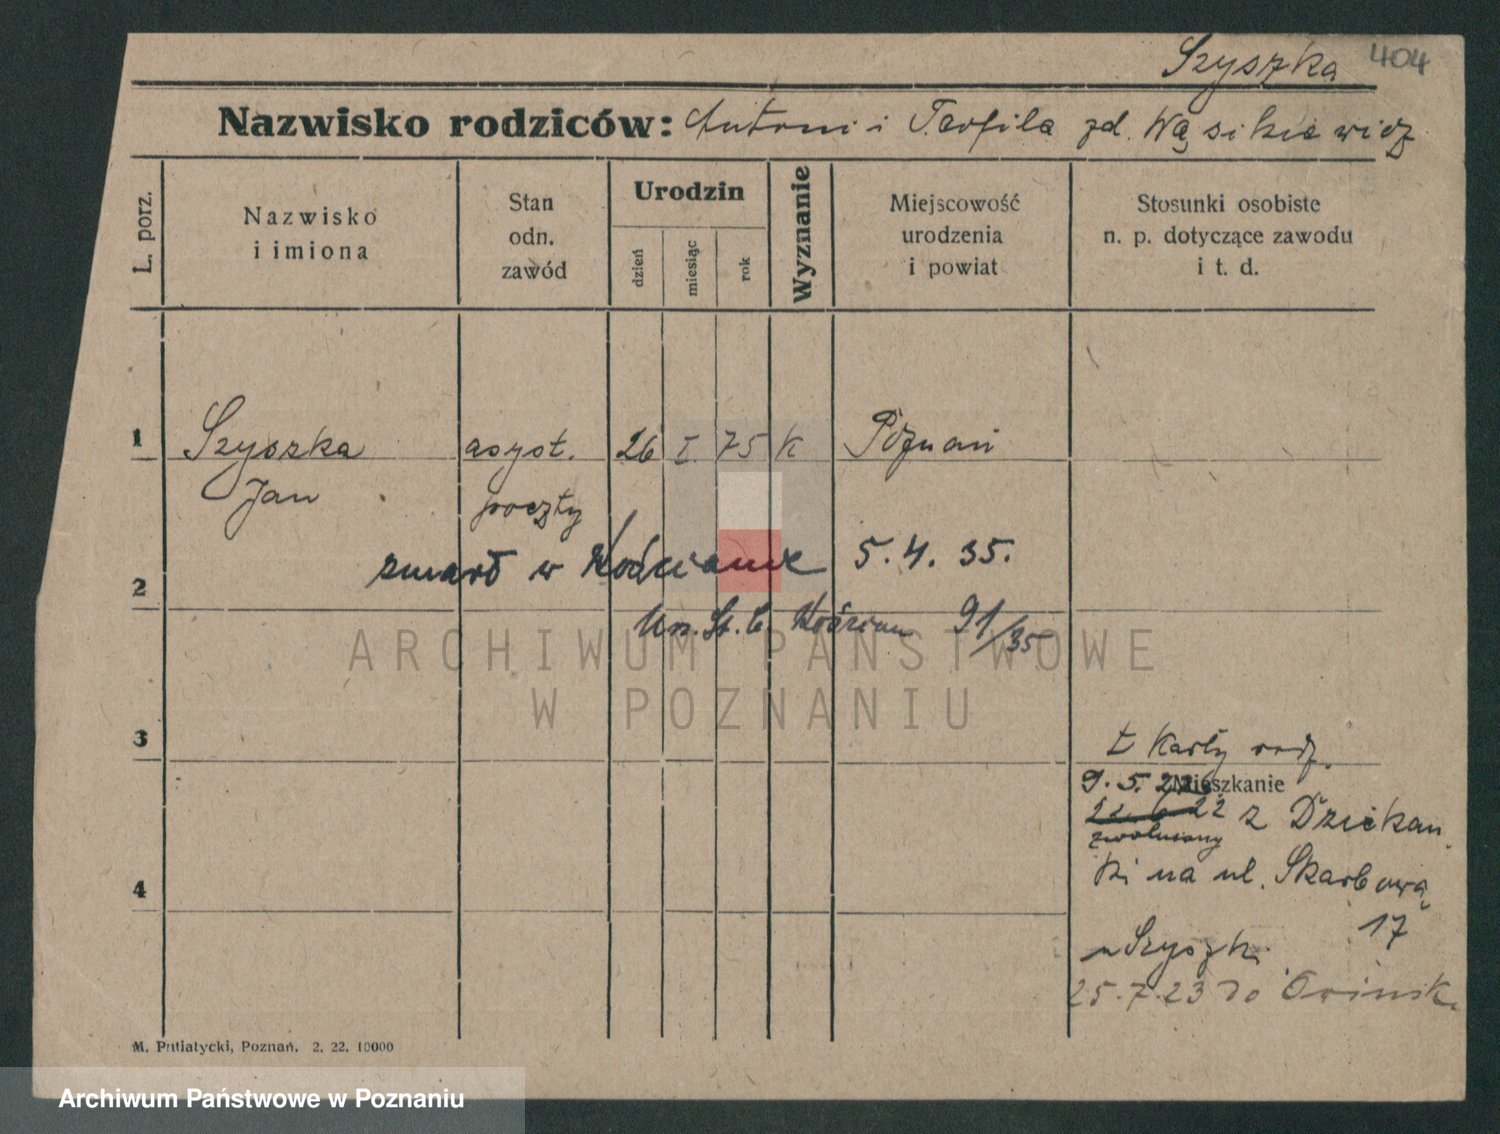 Szyszka 404
Nazwisko rodziców: Antoni i Teofila zd. Wąsikiewicz
L. porz.
Nazwisko
i imiona
Stan
odn.
zawód
Urodzin
dzień
miesiąc
rok
Wyznanie
Miejscowość
urodzenia
i powiat
Stosunki osobiste
n. p. dotyczące zawodu
i t. d.
1 Szyszka asyst. 26 I. 75 K Poznań
Jan poczty
2 zmarł w Kościanie 5. 4. 35.
St. C. Kościan 91/35
ARCHIWUM PAŃSTWOWE
W POZNANIU
3
Z Karty rodz.
Mieszkanie
9. 5. 22
22. 6. 22 z Dziekan
zwolniony
ki na ul. Skarbową
17
4
u Szyszki
25. 7. 23 do
M. Putiatycki, Poznań. 2. 22. 10000
Archiwum Państwowe w Poznaniu